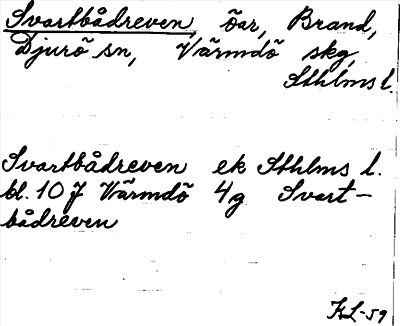 Svartbådreven, öar, Brand,
Djurö sn, Värmdö skg,
Sthlms l.
Svartbådreven ek Sthlms l.
bl. 10 J Värmdö 4g Svart-
bådreven
KL-59